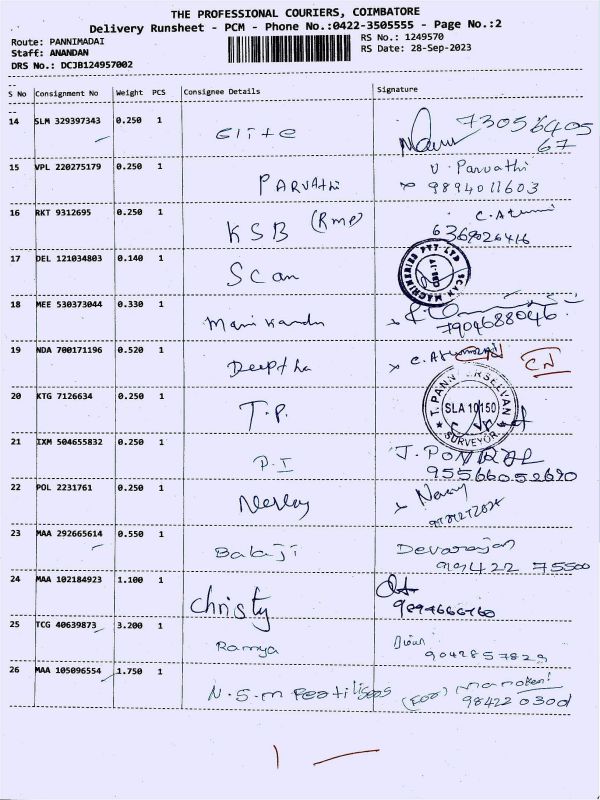 THE PROFESSIONAL COURIERS, COIMBATORE
Delivery Runsheet - PCM - Phone No.:0422-3505555 - Page No.:2
Route: PANNIMADAI RS No.: 1249570
Staff: ANANDAN RS Date: 28-Sep-2023
DRS No.: DCJB124957002
S No Consignment No Weight PCS Consignee Details Signature
14 SLM 329397343 0.250 1 Elite 73056405
67
15 VPL 220275179 0.250 1 PARVAThi V. Parvathi
9894011603
16 RKT 9312695 0.250 1 KSB (Rmp) C.
6369026416
17 DEL 121034803 0.140 1 Scan SCAN MACHINERIES PVT LTD
18 MEE 530373044 0.330 1 Mani kandn
7904688046
19 NDA 700171196 0.520 1 Deeptha C.
20 KTG 7126634 0.250 1 T.P. SLA 10150
SURVEYOR
21 IXM 504655832 0.250 1 P.I J. PONRAL
95566052620
22 POL 2231761 0.250 1
23 MAA 292665614 0.550 1 Balaji Devarajan
99422 75500
24 MAA 102184923 1.100 1 Christy
9894666760
25 TCG 40639873 3.200 1 Ramya
9042857829
26 MAA 105096554 1.750 1 N.S.m (For)
98422 0300